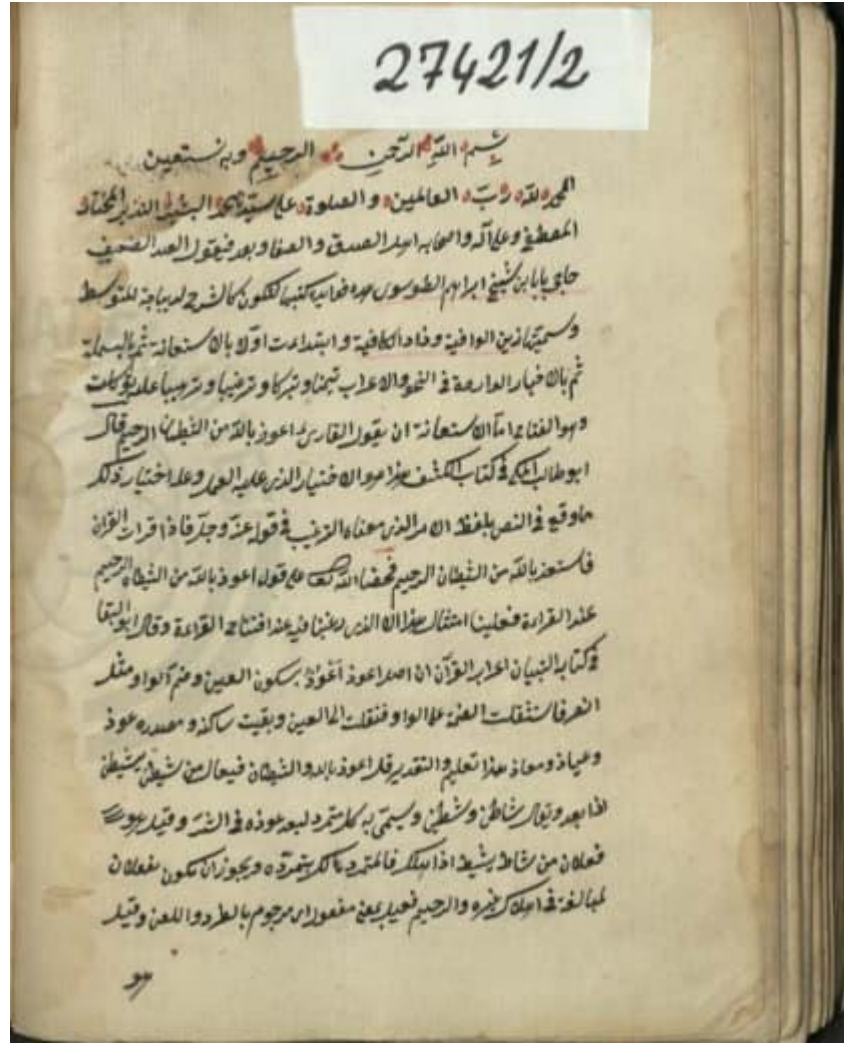 27421/2
بسم الله الرحمن الرحيم وبه نستعين
الحمد لله رب العالمين والصلوة على سيدنا محمد البشير النذير المختار
المصطفى وعلى آله واصحابه اهل الصدق والصفا وبعد فيقول العبد الضعيف
حاجي بابا بن شيخ ابراهيم الطوسوى هذه فوايد كتبها لتكون كالشرح لديباجة المتوسط
وسميتها زين الوافية وزاد الكافية وابتداءت اولا بالاستعاذة ثم بالبسملة
ثم بالاخبار الواردة في النحو والاعراب تيمنا وتبركا وترغيبا وترهيبا عليه توكلت
وهو الفتاح اما الاستعاذة ان يقول القارى اعوذ بالله من الشيطان الرجيم قال
ابو طالب المكي في كتاب الكشف هذا هو الاختيار الذى عليه العمل وعلة اختيار ذلك
ما وقع في النص بلفظ الامر الذى معناه الترغيب في قوله عز وجل فاذا قرات القران
فاستعذ بالله من الشيطان الرجيم فحضنا الله تعا على قول اعوذ بالله من الشيطان الرجيم
عند القراءة فعلينا امتثال هذا الذى رغبنا فيه عند افتتاح القراءة وقال ابو البقا
في كتابه التبيان اعراب القرآن ان اصل اعوذ أعْوُذ بسكون العين وضم الواو مثل
انصر فاستثقلت الضمة على الواو فنقلت الى العين وبقيت ساكنة ومصدره عوذ
وعياذ ومعاذ هذا تعليم والتقدير قل اعوذ بالله والشيطان فيعال من شطن يشطن
اذا بعد ويقال شاطن وشطين وسمى به كل متمرد لبعد غوره في الشر وقيل هو
فعلان من شاط يشيط اذا هلك فالمتمرد هالك بتمرده ويجوز ان تكون بفعلان
لمبالغة في اهلاك غيره والرجيم فعيل بمعنى مفعول اى مرجوم بالطرد واللعن وقيل
هو